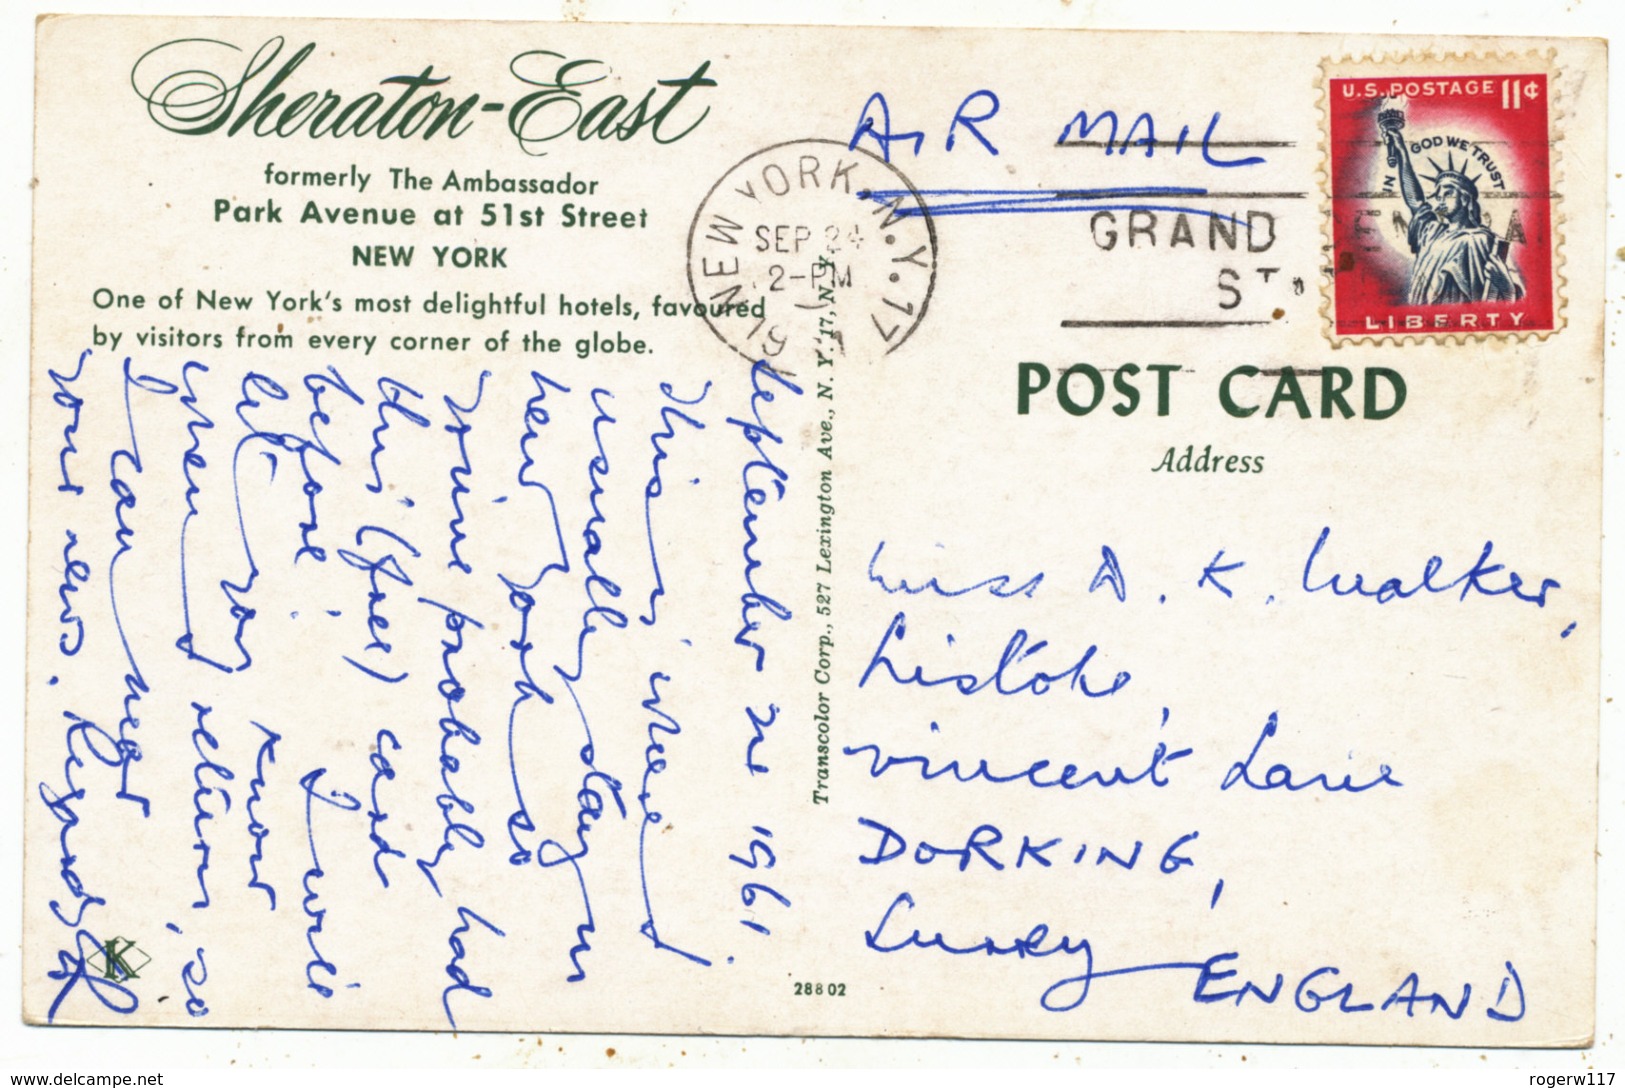 Sheraton-East
formerly The Ambassador
Park Avenue at 51st Street
NEW YORK
One of New York's most delightful hotels, favoured
by visitors from every corner of the globe.
September 24 1961.
This is where I
usually stay in
New York so
you've probably had
this (free) card
before. I will
let you know
when I return, so
I can hear
your news.
K
28802
Transcolor Corp., 527 Lexington Ave., N. Y. 17, N. Y.
AIR MAIL
NEW YORK, N.Y. 17
SEP 24
2-PM
1961
GRAND CENTRAL
STA.
U.S. POSTAGE 11¢
IN GOD WE TRUST
LIBERTY
POST CARD
Address
Miss D. K. Walker,
Listoke,
Vincent Lane
DORKING,
Surrey
ENGLAND
www.delcampe.net
rogerw117